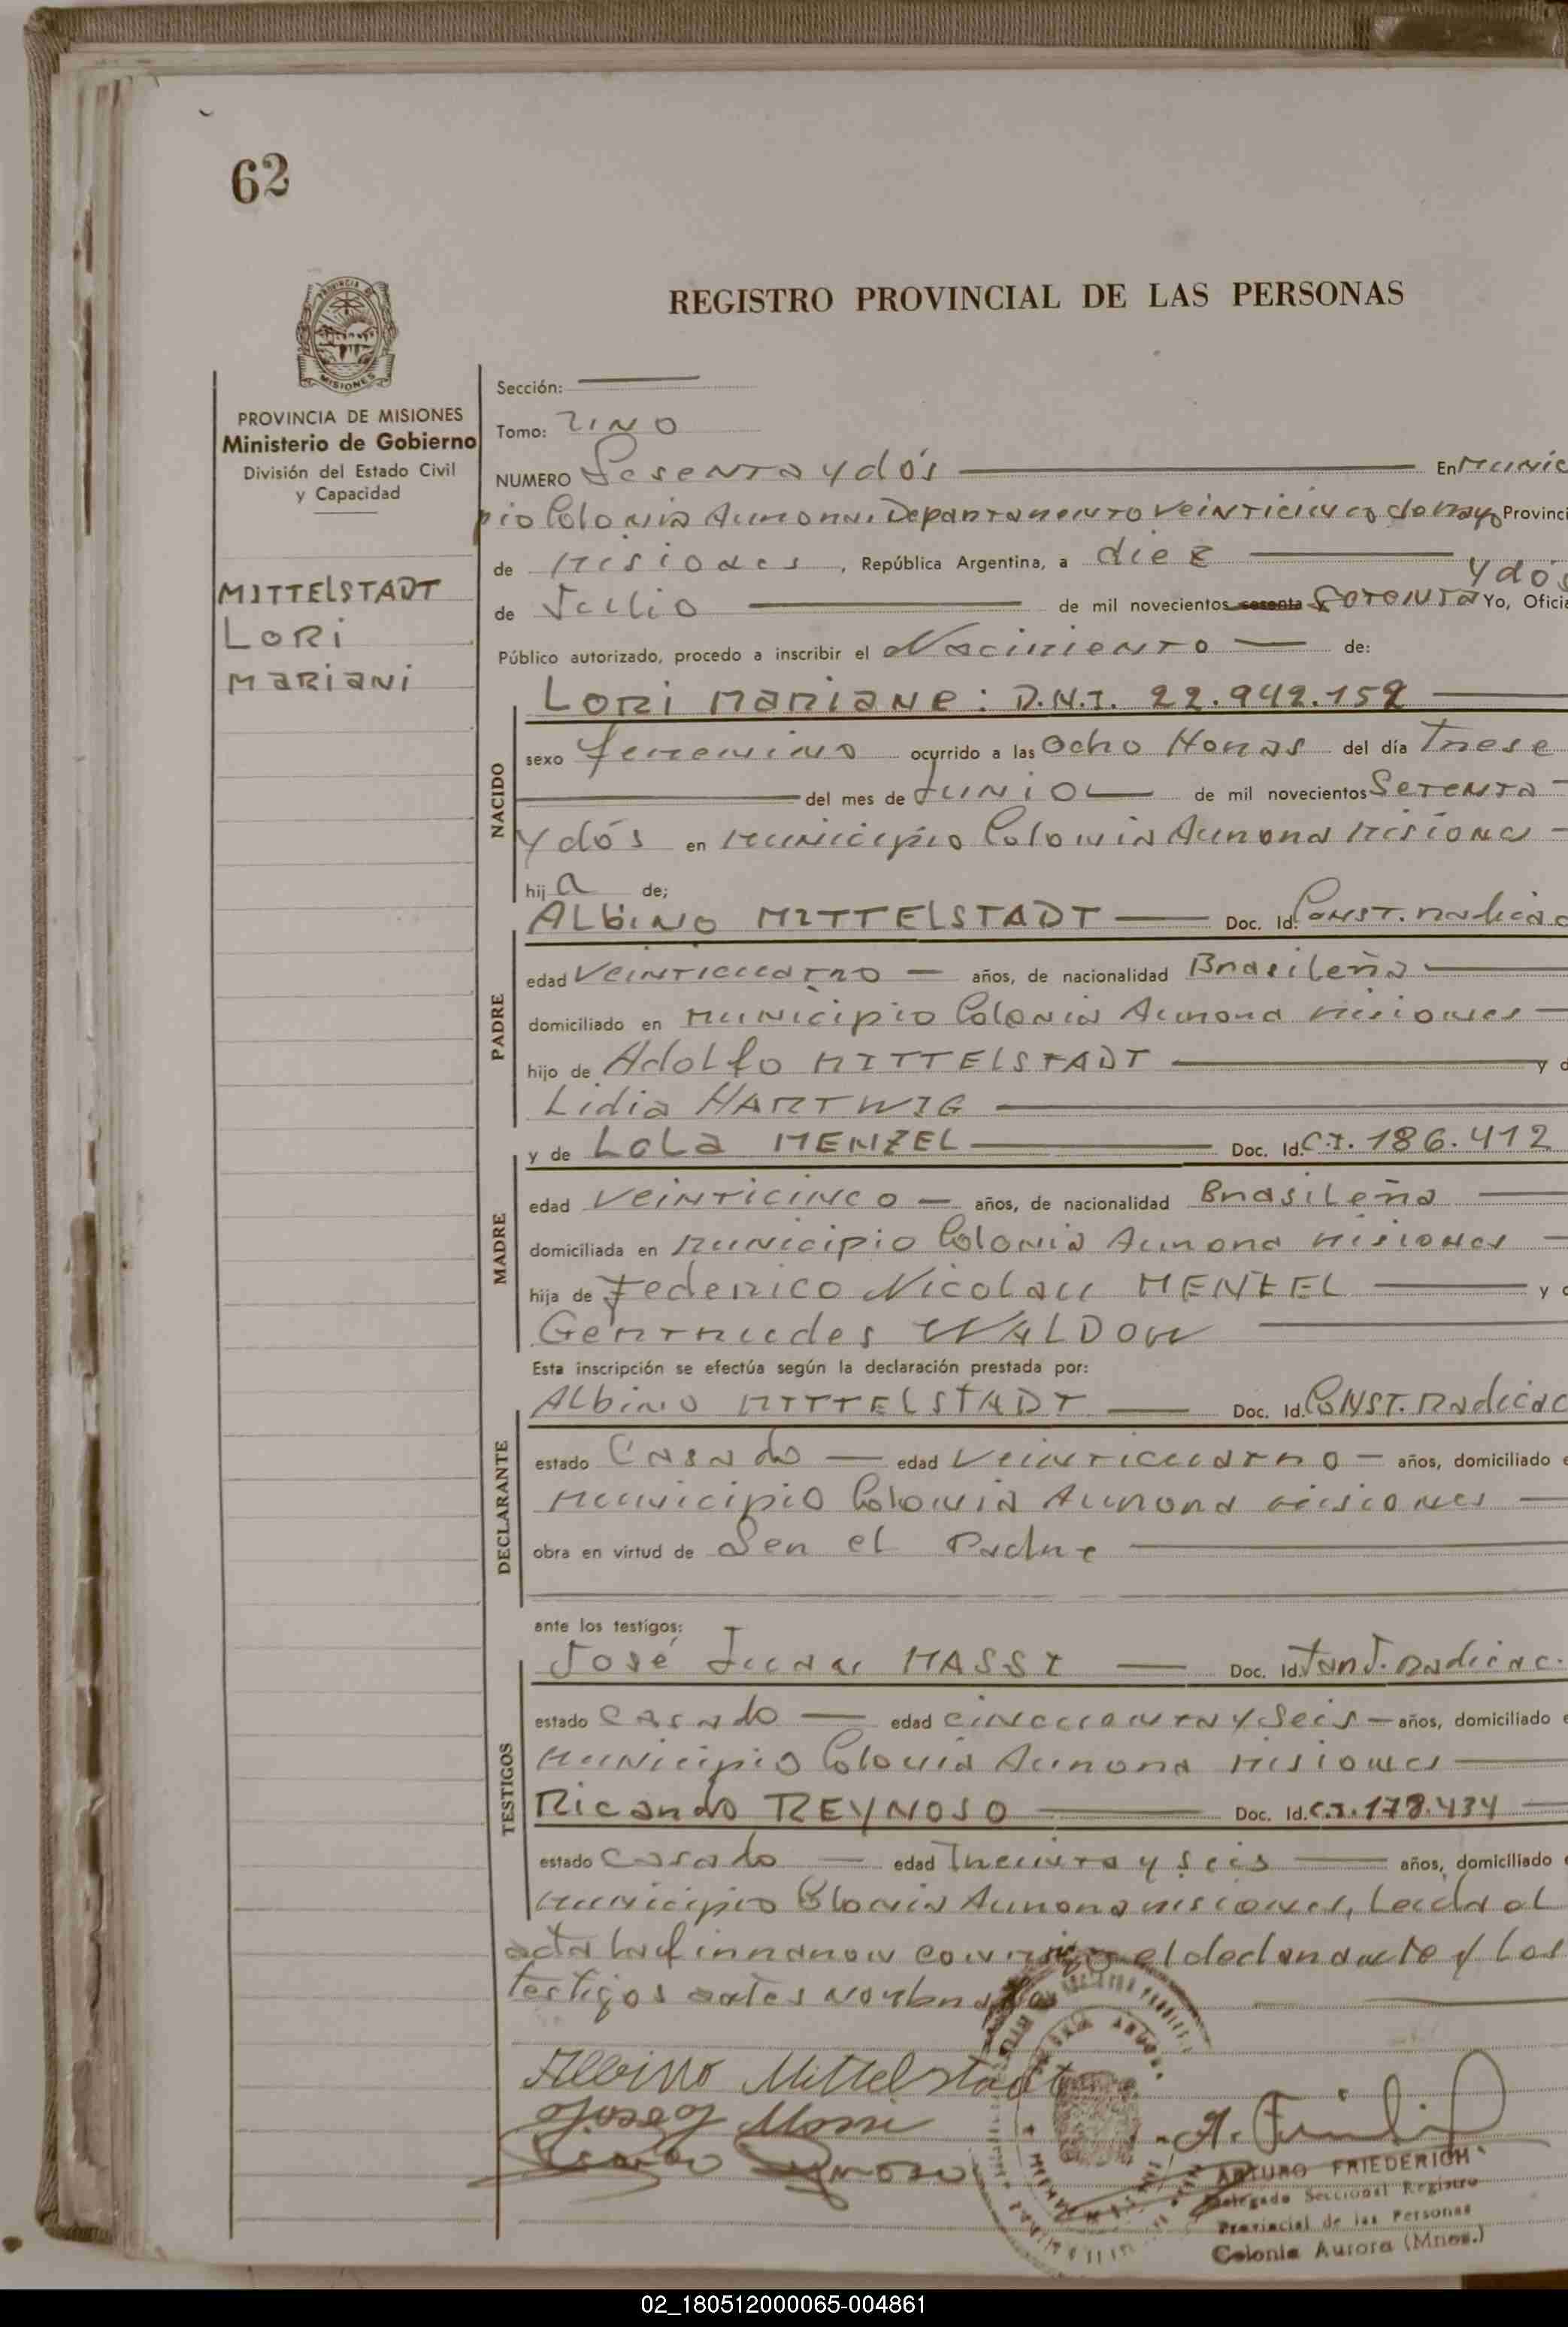 62
REGISTRO PROVINCIAL DE LAS PERSONAS
PROVINCIA DE MISIONES
Ministerio de Gobierno
División del Estado Civil
y Capacidad
MITTELSTADT
LORI
MARIANI
Sección:
Tomo: UNO
NUMERO Sesenta y dós En Munic
pio Colonia Aurora, Departamento Veinticinco de Mayo Provinci
de Misiones, República Argentina, a diez
de Julio de mil novecientos sesenta Setenta y dós Yo, Oficia
Público autorizado, procedo a inscribir el Nacimiento de:
NACIDO
LORI MARIANE: D.N.I. 22.942.152
sexo femenino ocurrido a las Ocho Horas del día Trese
del mes de Junio de mil novecientos Setenta
y dós en Municipio Colonia Aurora Misiones
hija de;
PADRE
ALBINO MITTELSTADT Doc. Id. Const. Radicac
edad Veinticuatro años, de nacionalidad Brasileña
domiciliado en Municipio Colonia Aurora Misiones
hijo de Adolfo MITTELSTADT y d
Lidia HARTWIG
MADRE
y de LOLA MENZEL Doc. Id. C.I. 186.412
edad Veinticinco años, de nacionalidad Brasileña
domiciliada en Municipio Colonia Aurora Misiones
hija de Federico Nicolau MENZEL y d
Gertrudes WALDOW
Esta inscripción se efectúa según la declaración prestada por:
DECLARANTE
Albino MITTELSTADT Doc. Id. Const. Radicac
estado Casado edad Veinticuatro años, domiciliado e
Municipio Colonia Aurora Misiones
obra en virtud de Ser el Padre
ante los testigos:
TESTIGOS
José Juan MASSI Doc. Id. Radicac.
estado Casado edad cincuenta y seis años, domiciliado e
Municipio Colonia Aurora Misiones
Ricardo REYNOSO Doc. Id. C.I. 178.434
estado Casado edad Treinta y seis años, domiciliado e
Municipio Colonia Aurora Misiones, Leida el
acta la firmaron conmigo el declarante y los
testigos antes nombrados
Albino Mittelstadt
Jose J Massi
Ricardo Reynoso
A. Friederich
ARTURO FRIEDERICH
Delegado Seccional Registro
Provincial de las Personas
Colonia Aurora (Mnes.)
02_180512000065-004861